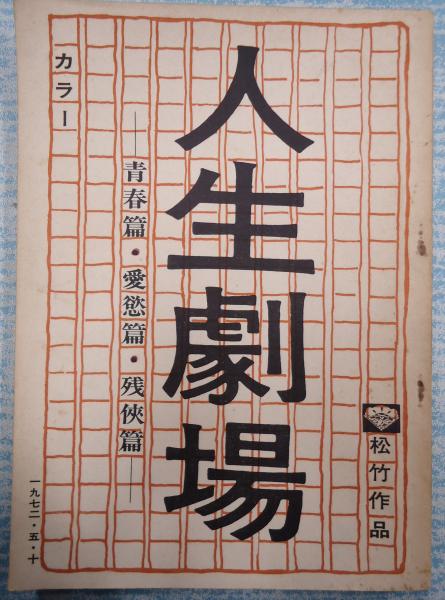 松竹作品
人生劇場
―青春篇・愛慾篇・残俠篇―
カラー
一九七二・五・十